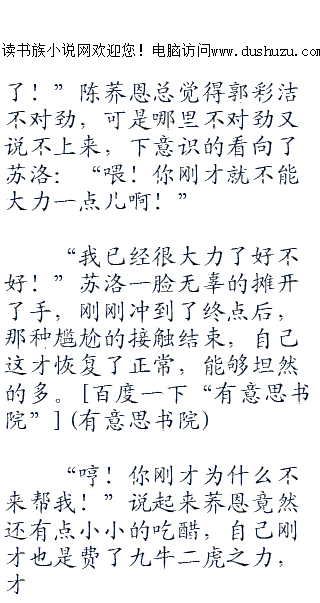 读书族小说网欢迎您！电脑访问www.dushuzu.com
了！”陈荞恩总觉得郭彩洁
不对劲，可是哪里不对劲又
说不上来，下意识的看向了
苏洛：“喂！你刚才就不能
大力一点儿啊！”
“我已经很大力了好不
好！”苏洛一脸无辜的摊开
了手，刚刚冲到了终点后，
那种尴尬的接触结束，自己
这才恢复了正常，能够坦然
的多。[百度一下“有意思书
院”](有意思书院)
“哼！你刚才为什么不
来帮我！”说起来荞恩竟然
还有点小小的吃醋，自己刚
才也是费了九牛二虎之力，
才